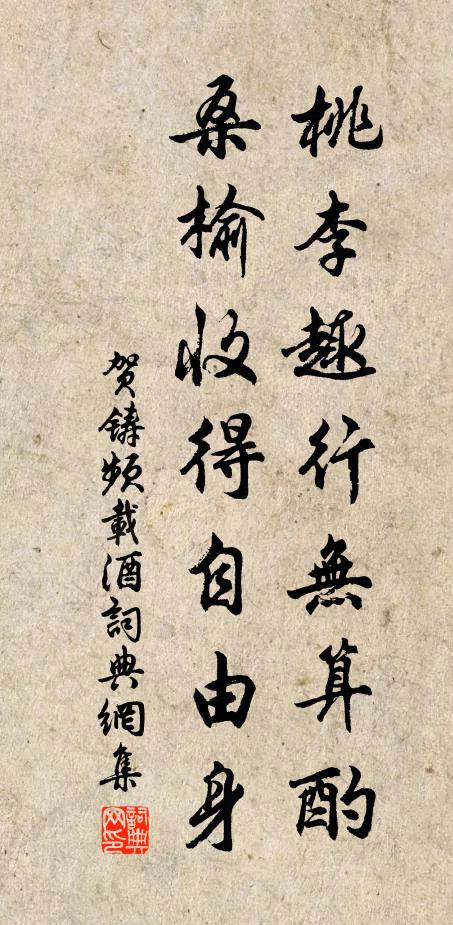 桃李趣行無算酌
桑榆收得自由身
贺鑄頻載酒詞典網集
詞典網印